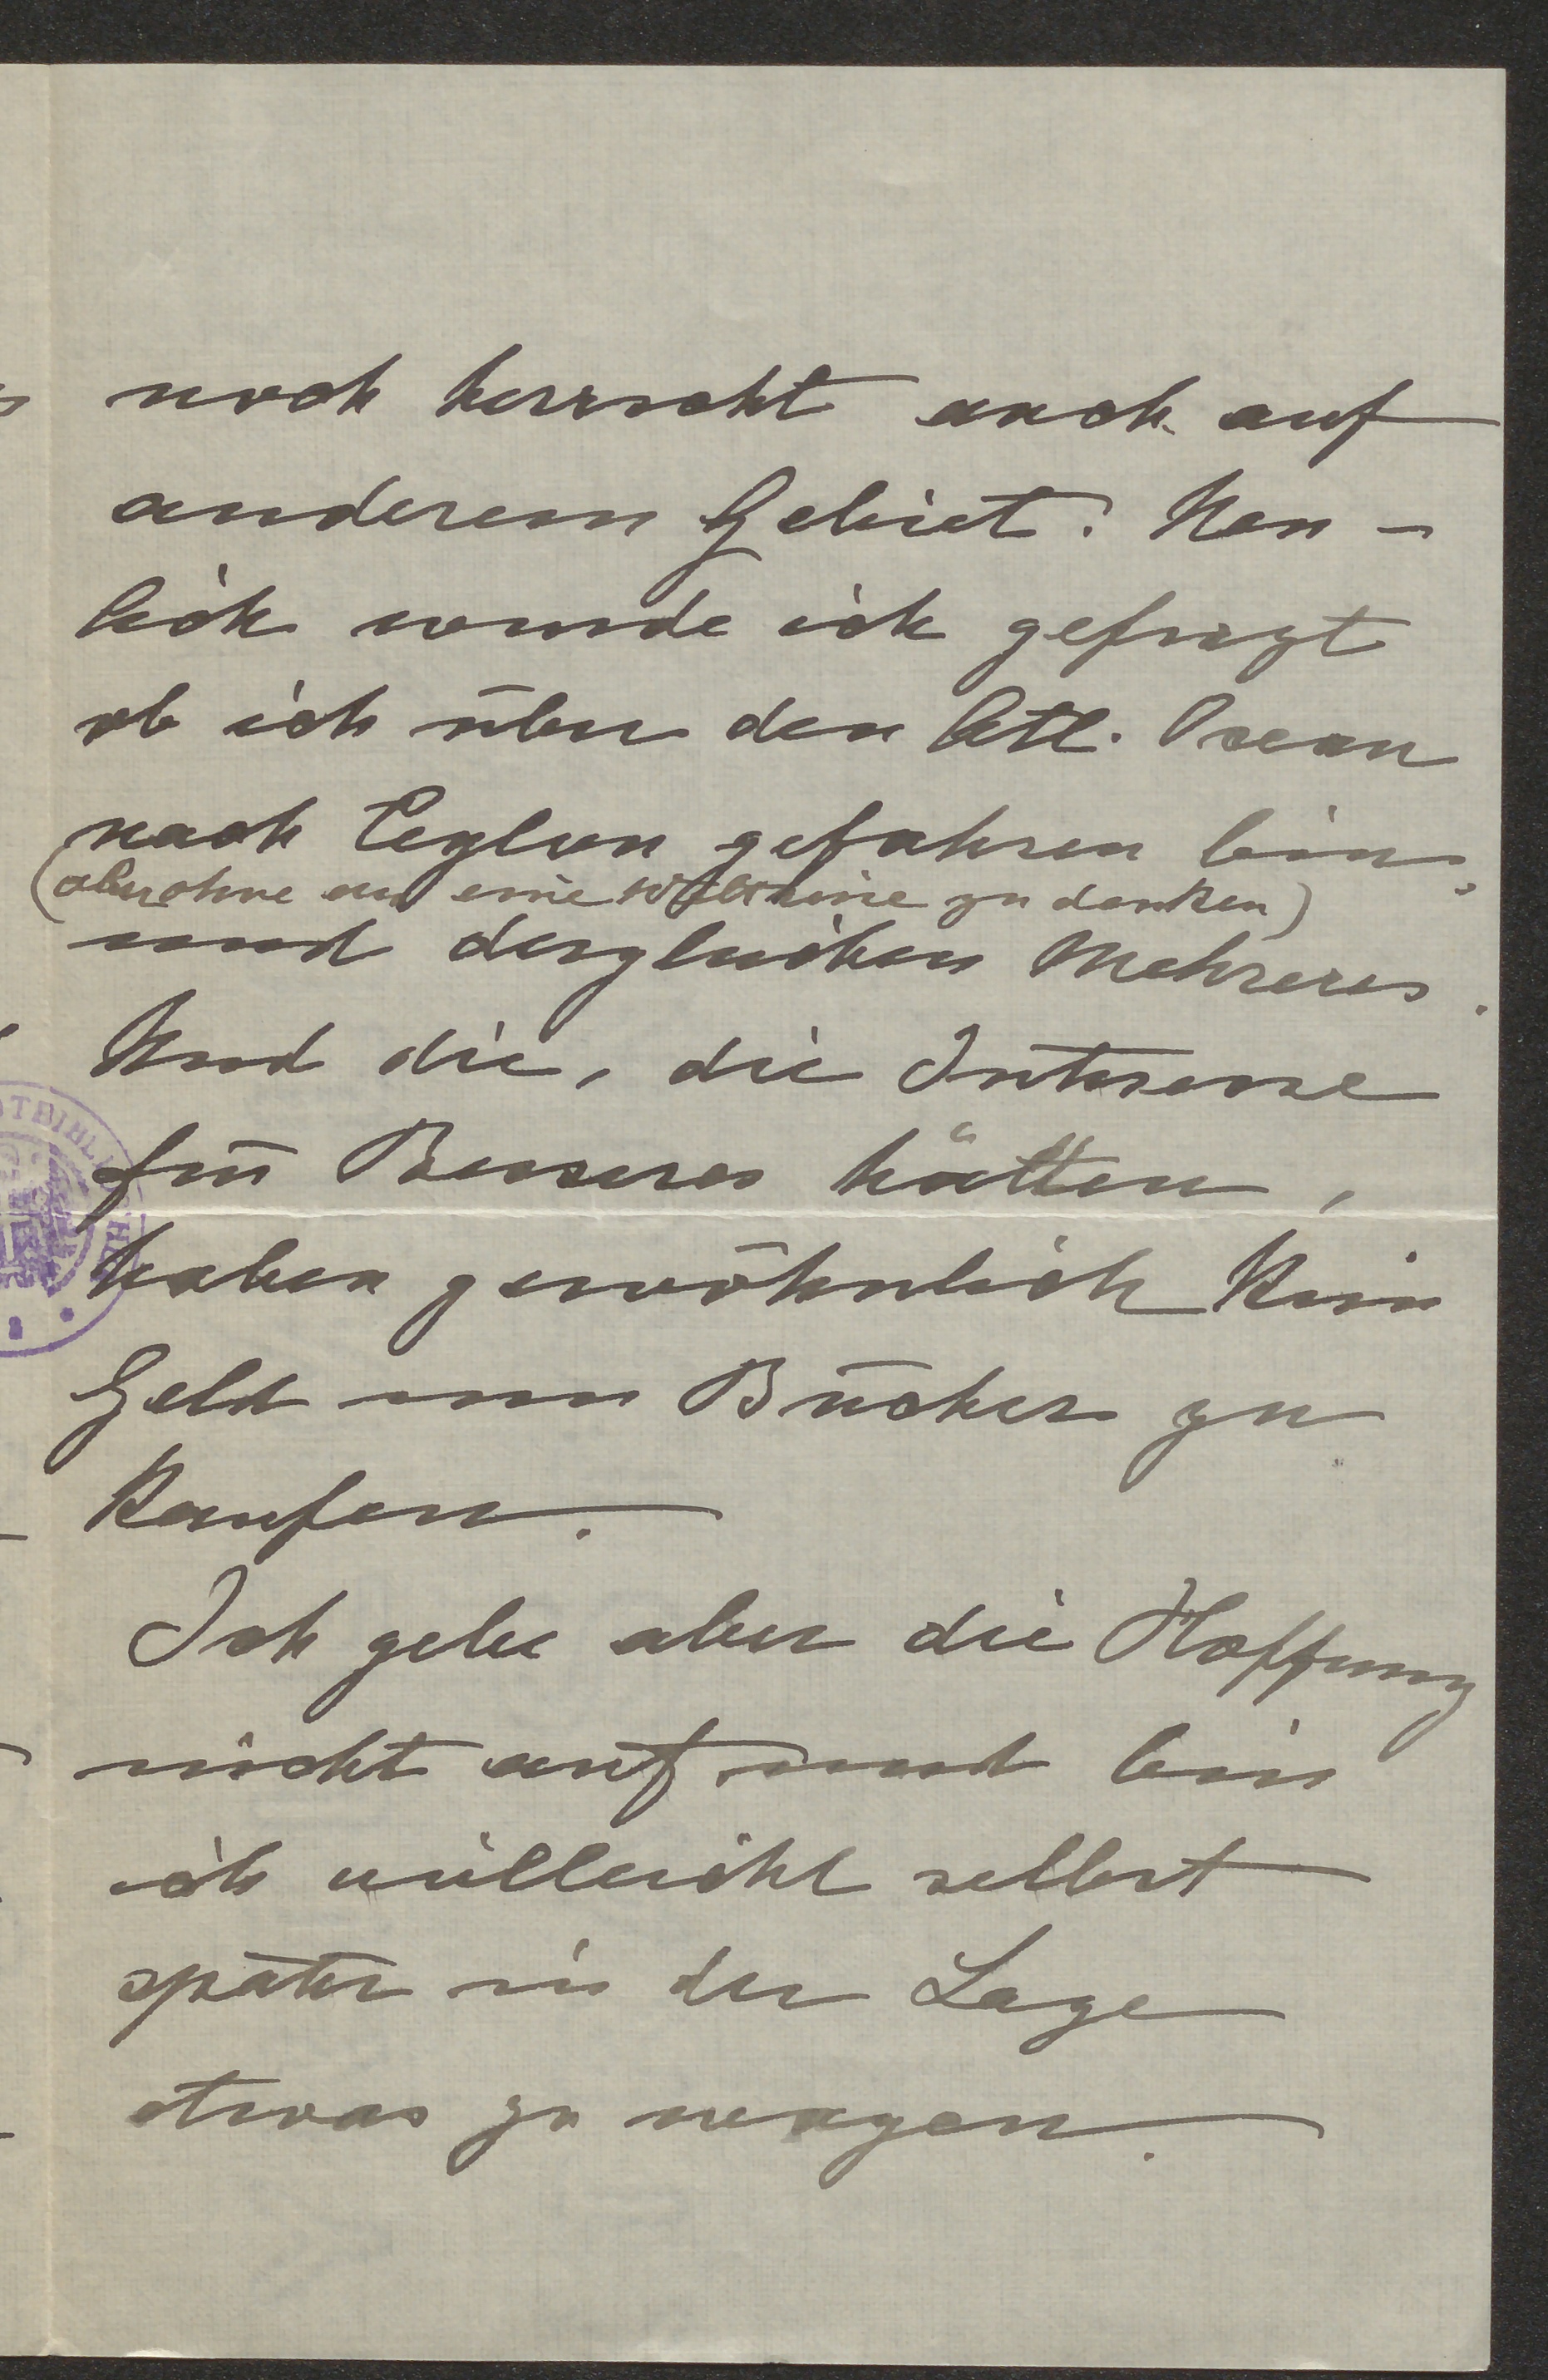 noch herrscht auch auf
anderem Gebiet. Neu-
lich wurde ich gefragt
ob ich über den Atl. Ozean
nach Ceylon gefahren bin,
(aber ohne an eine Weltreise zu denken)
und dergleichen Mehreres.
Und die, die Interesse
für Besseres hätten,
haben gewöhnlich kein
Geld um Bücher zu
kaufen.
Ich gebe aber die Hoffnung
nicht auf und bin
ich vielleicht selbst
später in der Lage
etwas zu wagen.